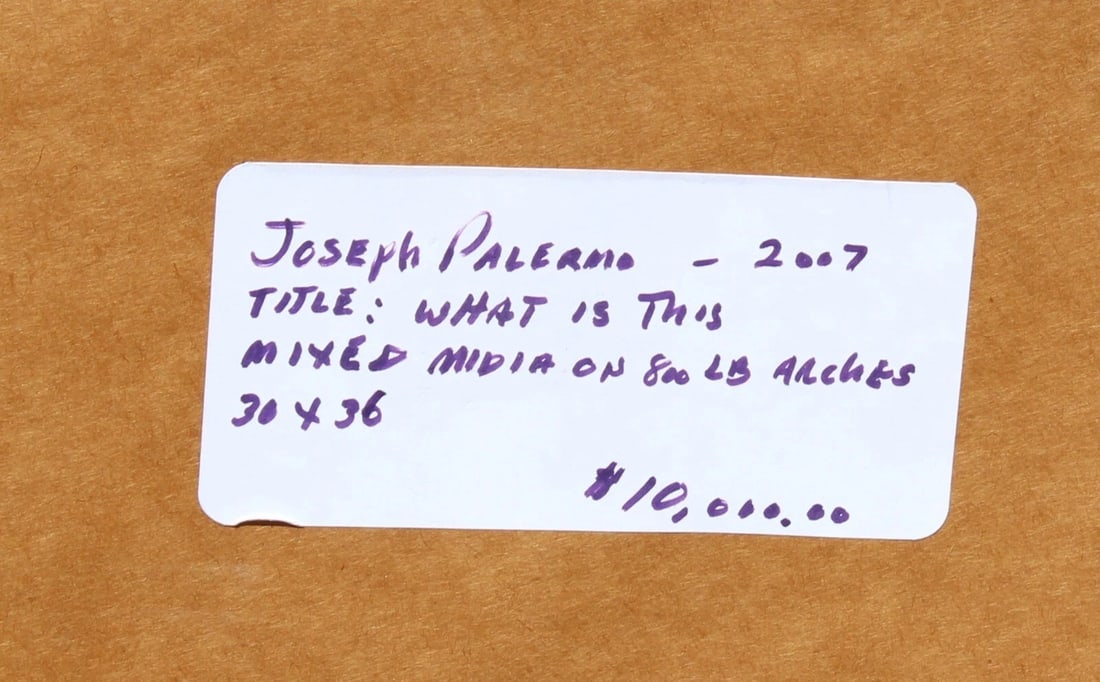 Joseph Palermo - 2007
TITLE: WHAT IS This
MIXED MIDIA ON 800 LB ARCHES
30 X 36
$10,000.00